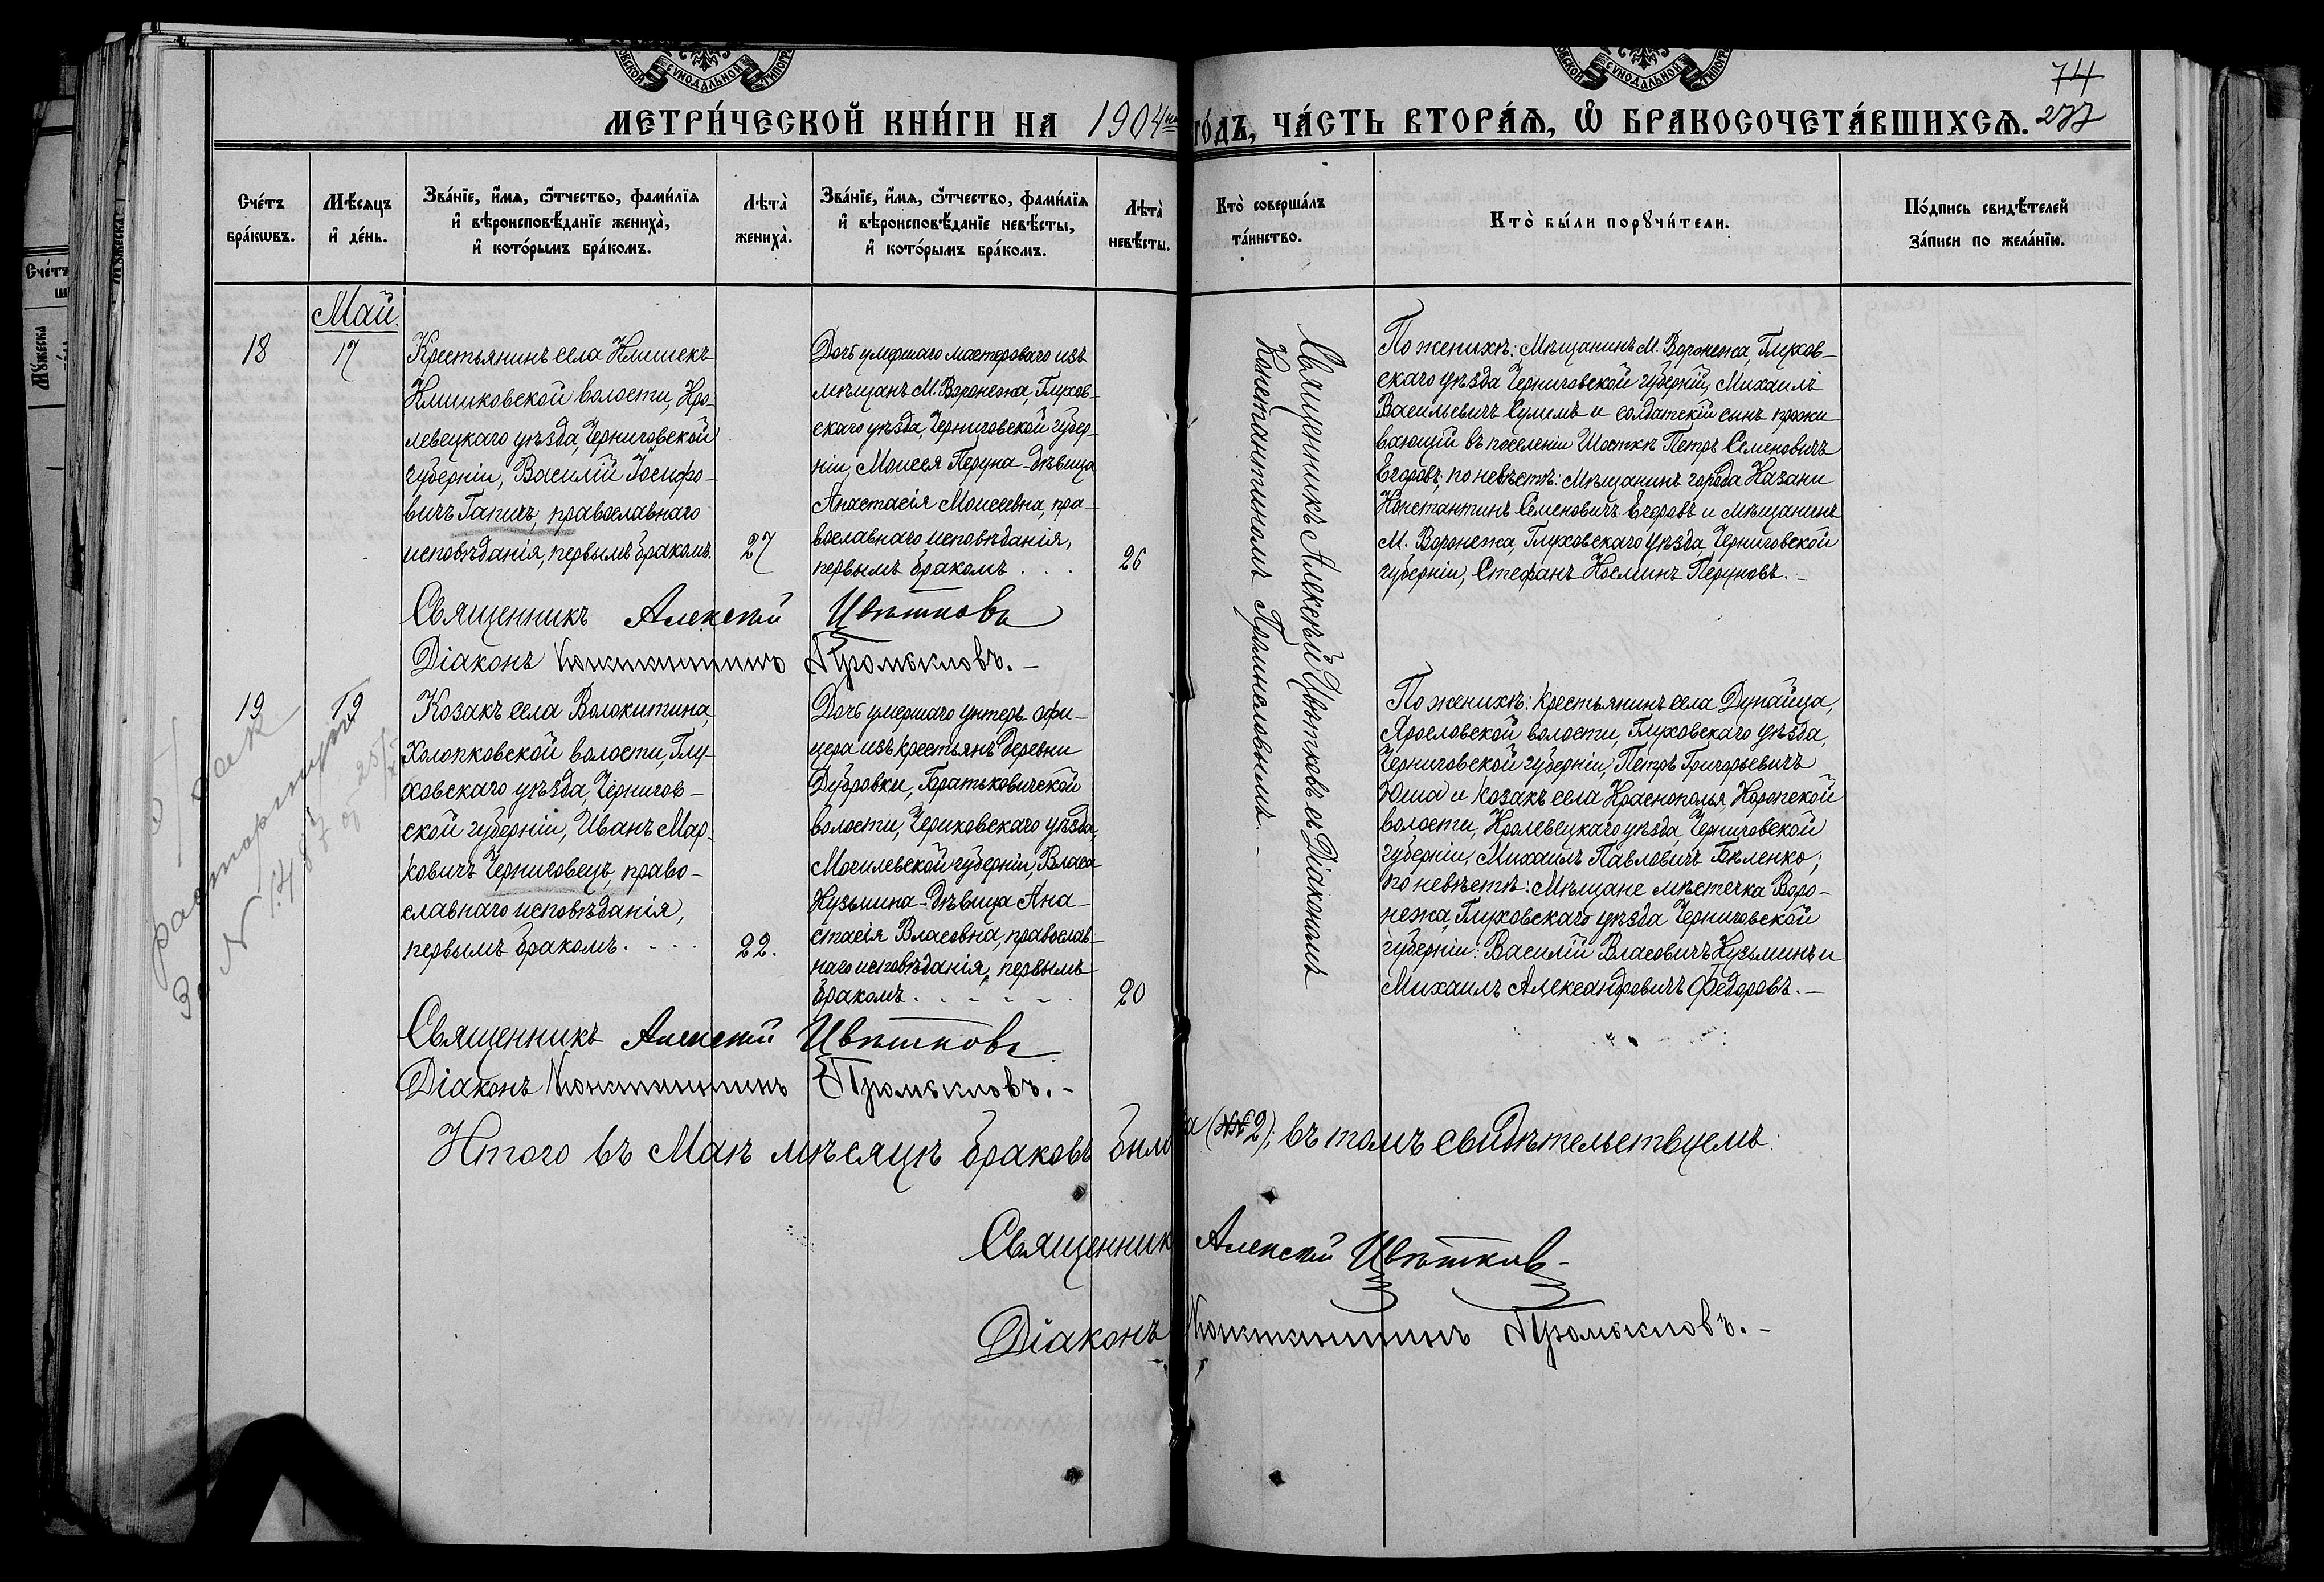 СУНОДАЛЬНОЙ
СУНОДАЛЬНОЙ
74
МЕТРИ́ЧЕСКОЙ КНИ́ГИ НА 1904 ГО́ДЪ, ЧА́СТЬ ВТОРА́Ѧ, Ѽ БРАКОСОЧЕТА́ВШИХСѦ. 277
Сче́тъ бра́кωвъ.
Мѣ́сяцъ и де́нь.
Зва́нїе, и́мя, ѻ́тчество, фами́лїя
и вѣроисповѣ́данїе жениха̀,
и кото́рымъ бра́комъ.
Лѣта̀ жениха̀.
Зва́нїе, и́мя, ѻ́тчество, фами́лїя
и вѣроисповѣ́данїе невѣ́сты,
и кото́рымъ бра́комъ.
Лѣта̀ невѣ́сты.
Кто̀ соверша́лъ
та́инство.
Кто̀ бы́ли порꙋчи́тели.
По́дпись свидѣ́телей
за́писи по жела́нїю.
Май.
18
17
Крестьянинъ села Клишекъ
Клишковской волости, Кро-
левецкаго уѣзда, Черниговской
губерніи, Василій Іосифо-
вичъ Гапичъ, православнаго
исповѣданія, первымъ бракомъ.
27
Дочь умершаго мастероваго изъ
мѣщанъ М. Воронежа, Глухов-
скаго уѣзда, Черниговской губер-
ніи, Моисея Перуна - дѣвица
Анастасія Моисеевна, пра-
вославнаго исповѣданія,
первымъ бракомъ . . .
26
Священникъ Алексѣй Цвѣтковъ съ Діакономъ
Константиномъ Промысловымъ. -
По женихѣ: Мѣщанинъ М. Воронежа, Глухов-
скаго уѣзда Черниговской губерніи, Михаилъ
Васильевичъ Сулимъ и солдатскій сынъ прожи-
вающій въ поселеніи Шосткѣ Петръ Семеновичъ
Егоровъ; по невѣстѣ: Мѣщанинъ города Казани
Константинъ Семеновичъ Егоровъ и мѣщанинъ
М. Воронежа, Глуховскаго уѣзда, Черниговской
губерніи, Стефанъ Косминъ Перуновъ. -
Священникъ Алексѣй Цвѣтковъ
Діаконъ Константинъ Промысловъ. -
19
19
Козакъ села Волокитина,
Холопковской волости, Глу-
ховскаго уѣзда, Чернигов-
ской губерніи, Иванъ Мар-
ковичъ Черниговецъ, право-
славнаго исповѣданія,
первымъ бракомъ . . . .
22.
Дочь умершаго унтеръ-офи-
цера изъ крестьянъ деревни
Дубровки, Братьковичской
волости, Чериковскаго уѣзда,
Могилевской губерніи, Власа
Кузьмина - дѣвица Ана-
стасія Власовна, православ-
наго исповѣданія, первымъ
бракомъ . . . . . .
20
По женихѣ: крестьянинъ села Дунайца,
Ярославской волости, Глуховскаго уѣзда,
Черниговской губерніи, Петръ Григорьевичъ
Юша и козакъ села Краснополья Коропской
волости, Кролевецкаго уѣзда, Черниговской
губерніи, Михаилъ Павловичъ Бѣленко;
по невѣстѣ: Мѣщане мѣстечка Воро-
нежа, Глуховскаго уѣзда Черниговской
губерніи: Василій Власовичъ Кузьминъ и
Михаилъ Александровичъ Федоровъ. -
расторгнутъ
За N 1487
Священникъ Алексѣй Цвѣтковъ
Діаконъ Константинъ Промысловъ. -
Итого въ Маѣ мѣсяцѣ браковъ было два (№№ 2); въ томъ свидѣтельствуемъ:
Священникъ Алексѣй Цвѣтковъ -
Діаконъ Константинъ Промысловъ. -